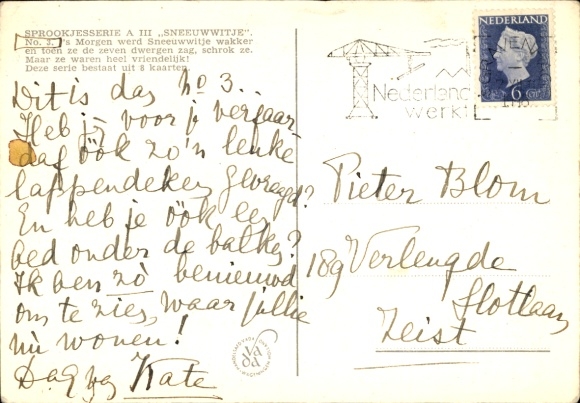 SPROOKJESSERIE A III „SNEEUWWITJE".
No. 3. 's Morgen werd Sneeuwwitje wakker
en toen ze de zeven dwergen zag, schrok ze.
Maar ze waren heel vriendelijk!
Deze serie bestaat uit 8 kaarten.
Dit is dan No 3..
Heb jij voor je verjaar-
dag óók zo'n leuke
lappendeken gevraagd?
En heb je óók een
bed onder de balken?
Ik ben zò benieuwd
om te zien, waar jullie
nu wonen!
Dag van Kate
NEDERLAND
6
Nederland
werkt
Pieter Blom
189 Verlengde
Slotlaan
Zeist